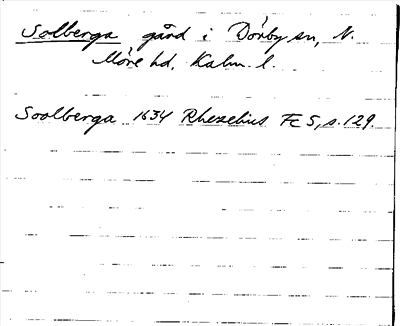 Solberga gård i Dörby sn, N.
Möre hd. Kalm. l.
Soolberga 1634 Rhezelius FC 5, s. 129.